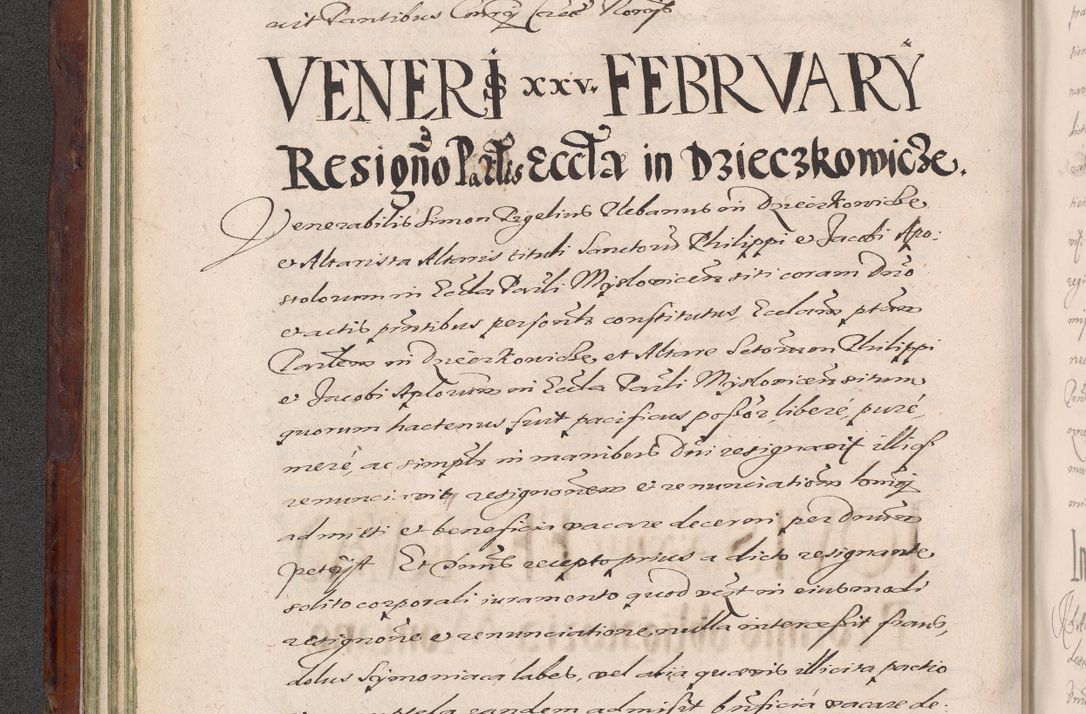 VENERIS xxv. FEBRVARY
Resigño Parlis Eccla in Dzieczkowicze.
Venerabilis Simon Rigelius Plebanus in Dzieczkowicze
et Altarista Altaris tituli Sanctorū Philippi et Jacobi Apo:
stolorum in Eccla Parli Mysloviceñ siti coram Dno
et actis pñtibus personlr constitutus, Ecclam ptam
Parlem in Dzieczkowicze, et Altare Sctorum Philippi
et Jacobi Aplorum in Eccla Parli Mysloviceñ situm
quorum hactenus fuit pacificus possor, liberé, puré,
meré, ac simplr in manibus Dni resignavit illisq
renunciavit, resignonem et renunciationem
admitti et beneficia vacare decerni per Dnum
petijt Et Dnus recepto prius a dicto resignante
solito corporali iuramento quod in eiusmodi
resignone et renunciatione nulla intercessit fraus,
dolus Symoniaca labes, vel alia quævis illicita pactio
eandem admisit bnficia vacare de-